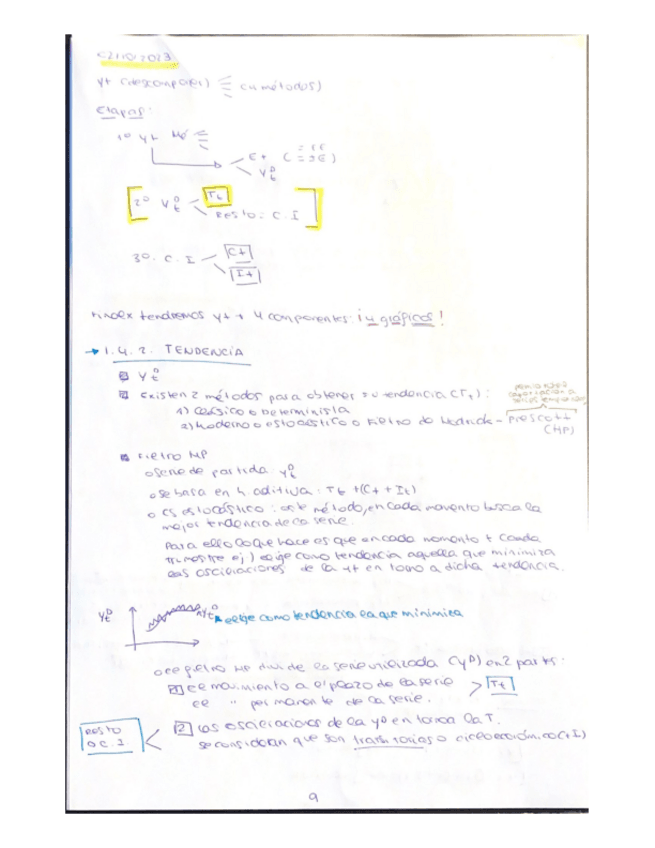 yt (descomponer) (4 métodos)
Etapas:
1º yt
Et
ytᴰ
2º ytᴰ Tt
Resto: C.I
3º. C.I Ct
It
tendremos yt + 4 componentes: ¡4 gráficos!
→ 1.4.2. TENDENCIA
ytᴰ
Existen 2 métodos para obtener su tendencia (Tt):
1) Clásico o Determinista
2) Moderno o estocástico o Filtro de Hodrick-Prescott
(HP)
Filtro HP
o serie de partida: ytᴰ
o se basa en h. aditiva: Tt + (Ct + It)
o Es estocástico: este método, en cada momento busca la
mejor tendencia de la serie.
Para ello lo que hace es que en cada momento t (cada
trimestre ej) elige como tendencia aquella que minimiza
las oscilaciones de la yt en torno a dicha tendencia.
ytᴰ ytᴰ elige como tendencia la que minimiza
o el filtro HP divide la serie utilizada (yᴰ) en 2 partes:
1 el movimiento a l/plazo de la serie
el " permanente de la serie. > Tt
2 Las oscilaciones de la yᴰ en torno a la T.
se consideran que son transitorias o ciclo económico (C+I)
RESTO
o C.I
9